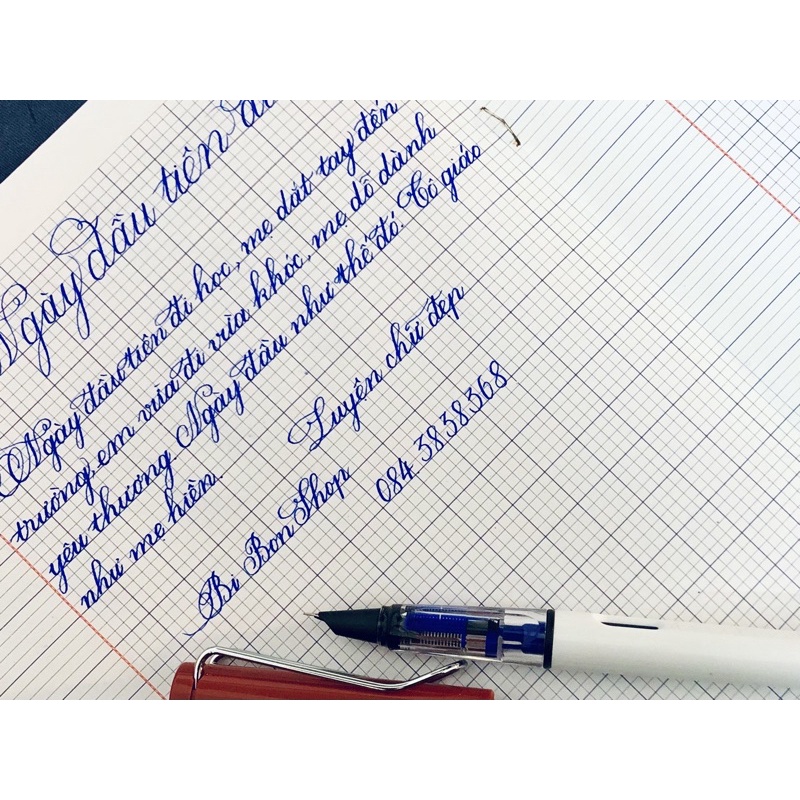 Ngày đầu tiên đi
Ngày đầu tiên đi học, mẹ dắt tay đến
trường, em vừa đi vừa khóc, mẹ dỗ dành
yêu thương Ngày đầu như thế đó. Cô giáo
như mẹ hiền
Luyện chữ đẹp
Bi Bon Shop
084 3838368